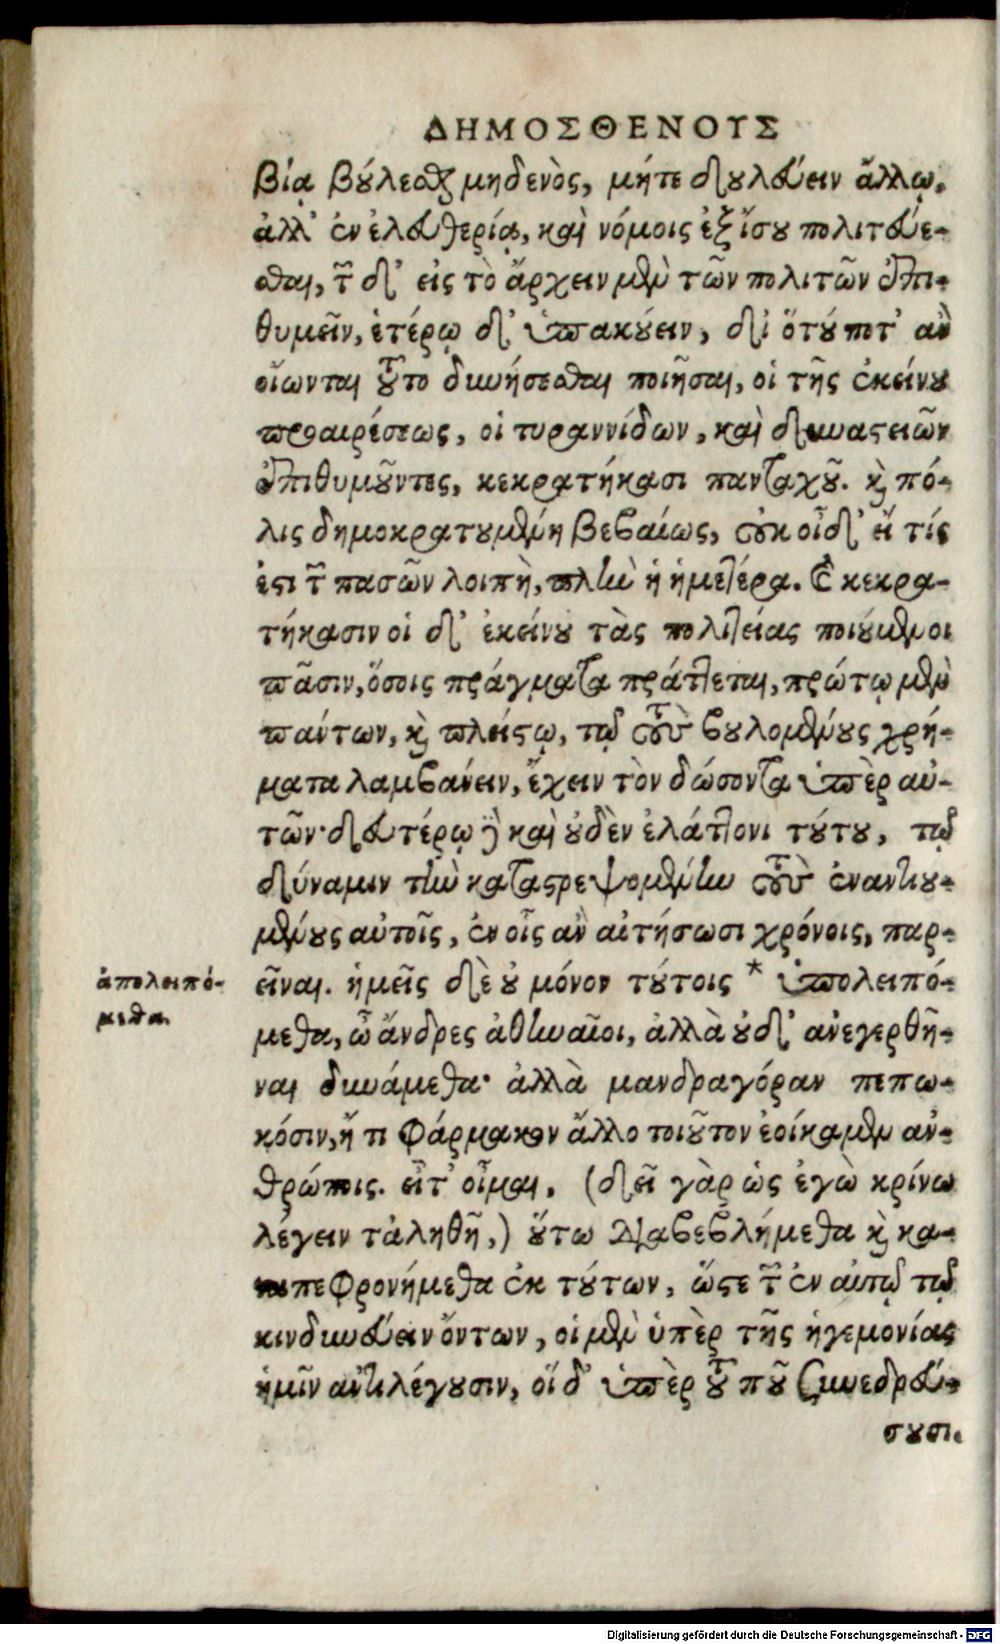 ΔΗΜΟΣΘΕΝΟΥΣ
βίᾳ βούλεσθαι μηδενὸς, μήτε δουλεύειν ἄλλῳ.
ἀλλ' ἐν ἐλευθερίᾳ, καὶ νόμοις ἐξ ἴσου πολιτεύε-
σθαι, τῶν δ' εἰς τὸ ἄρχειν μὲν τῶν πολιτῶν ἐπι-
θυμεῖν, ἑτέρῳ δ' ὑπακούειν, δι' ὅτου ποτ' ἂν
οἴωνται τοῦτο δυνήσεσθαι ποιῆσαι, οἱ τῆς ἐκείνου
προαιρέσεως, οἱ τυραννίδων, καὶ δυναστειῶν
ἐπιθυμοῦντες, κεκρατήκασι πανταχοῦ. καὶ πό-
λις δημοκρατουμένη βεβαίως, οὐκ οἶδ' εἴ τίς
ἐστι τῶν πασῶν λοιπὴ, πλὴν ἡ ἡμετέρα. καὶ κεκρα-
τήκασιν οἱ δι' ἐκείνου τὰς πολιτείας ποιούμενοι
πᾶσιν, ὅσοις πράγματα πράττεται, πρώτῳ μὲν
πάντων, καὶ πλείστῳ, τῷ τοὺς βουλομένους χρή-
ματα λαμβάνειν, ἔχειν τὸν δώσοντα ὑπὲρ αὐ-
τῶν· δευτέρῳ δὲ καὶ οὐδὲν ἐλάττονι τούτου, τῷ
δύναμιν τὴν καταστρεψομένην τοὺς ἐναντιου-
μένους αὐτοῖς, ἐν οἷς ἂν αἰτήσωσι χρόνοις, παρ-
εῖναι. ἡμεῖς δὲ οὐ μόνον τούτοις * ὑπολειπό-
μεθα, ὦ ἄνδρες ἀθηναῖοι, ἀλλὰ οὐδ' ἀνεγερθῆ-
ναι δυνάμεθα· ἀλλὰ μανδραγόραν πεπω-
κόσιν, ἤ τι φάρμακον ἄλλο τοιοῦτον ἐοίκαμεν ἀν-
θρώποις. εἶτ' οἶμαι, (δεῖ γὰρ ὡς ἐγὼ κρίνω
λέγειν τἀληθῆ,) οὕτω διαβεβλήμεθα καὶ κα-
ταπεφρονήμεθα ἐκ τούτων, ὥστε τῶν ἐν αὐτῷ τῷ
κινδυνεύειν ὄντων, οἱ μὲν ὑπὲρ τῆς ἡγεμονίας
ἡμῖν ἀντιλέγουσιν, οἵ δ' ὑπὲρ τοῦ ποῦ συνεδρεύ-
σουσι.
ἀπολειπό-
μεθα.
Digitalisierung gefördert durch die Deutsche Forschungsgemeinschaft - DFG